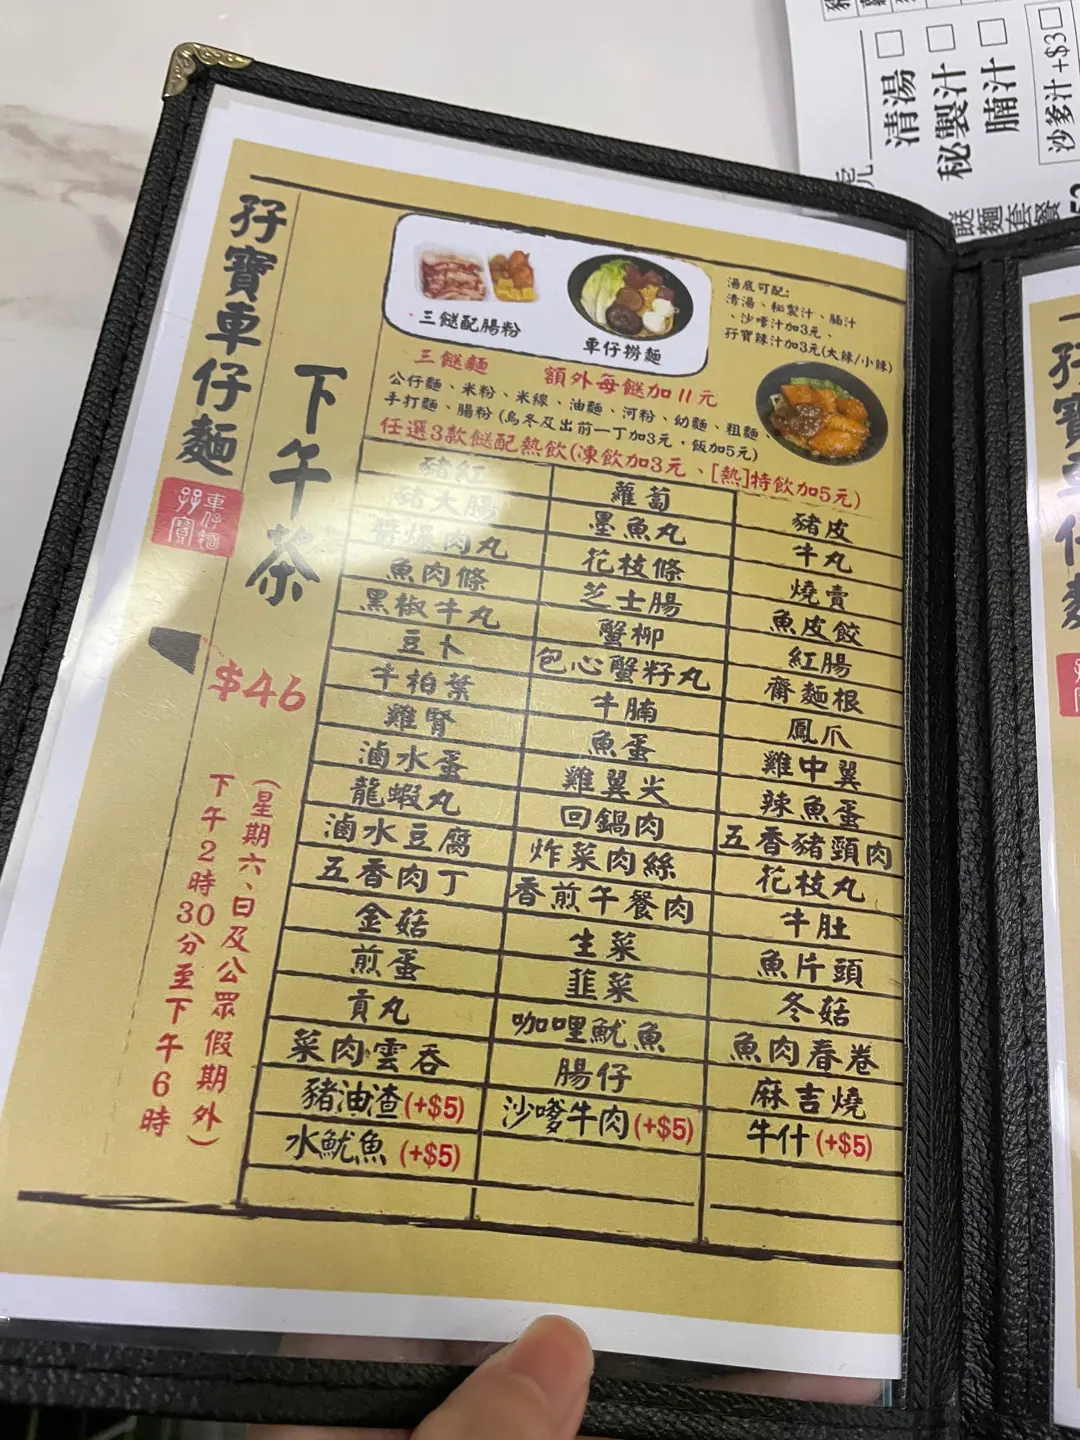 孖寶車仔麵
車仔麵
孖寶
下午茶
$46
(星期六、日及公眾假期外)
下午2時30分至下午6時
三餸配腸粉
車仔撈麵
湯底可配:
清湯、秘製汁、腩汁
、沙嗲汁加3元、
孖寶辣汁加3元(大辣/小辣)
三餸麵
額外每餸加11元
公仔麵、米粉、米線、油麵、河粉、幼麵、粗麵、
手打麵、腸粉 (烏冬及出前一丁加3元，飯加5元)
任選3款餸配熱飲(凍飲加3元、[熱]特飲加5元)
豬紅 蘿蔔 豬皮
豬大腸 墨魚丸 牛丸
醬爆肉丸 花枝條 燒賣
魚肉條 芝士腸 魚皮餃
黑椒牛丸 蟹柳 紅腸
豆卜 包心蟹籽丸 齋麵根
牛柏葉 牛腩 鳳爪
雞腎 魚蛋 雞中翼
滷水蛋 雞翼尖 辣魚蛋
龍蝦丸 回鍋肉 五香豬頸肉
滷水豆腐 炸菜肉絲 花枝丸
五香肉丁 香煎午餐肉 牛肚
金菇 生菜 魚片頭
煎蛋 韮菜 冬菇
貢丸 咖哩魷魚 魚肉春卷
菜肉雲吞 腸仔 麻吉燒
豬油渣(+$5) 沙嗲牛肉(+$5) 牛什(+$5)
水魷魚 (+$5)
清湯
秘製汁
腩汁
沙爹汁+$3
餸麵套餐